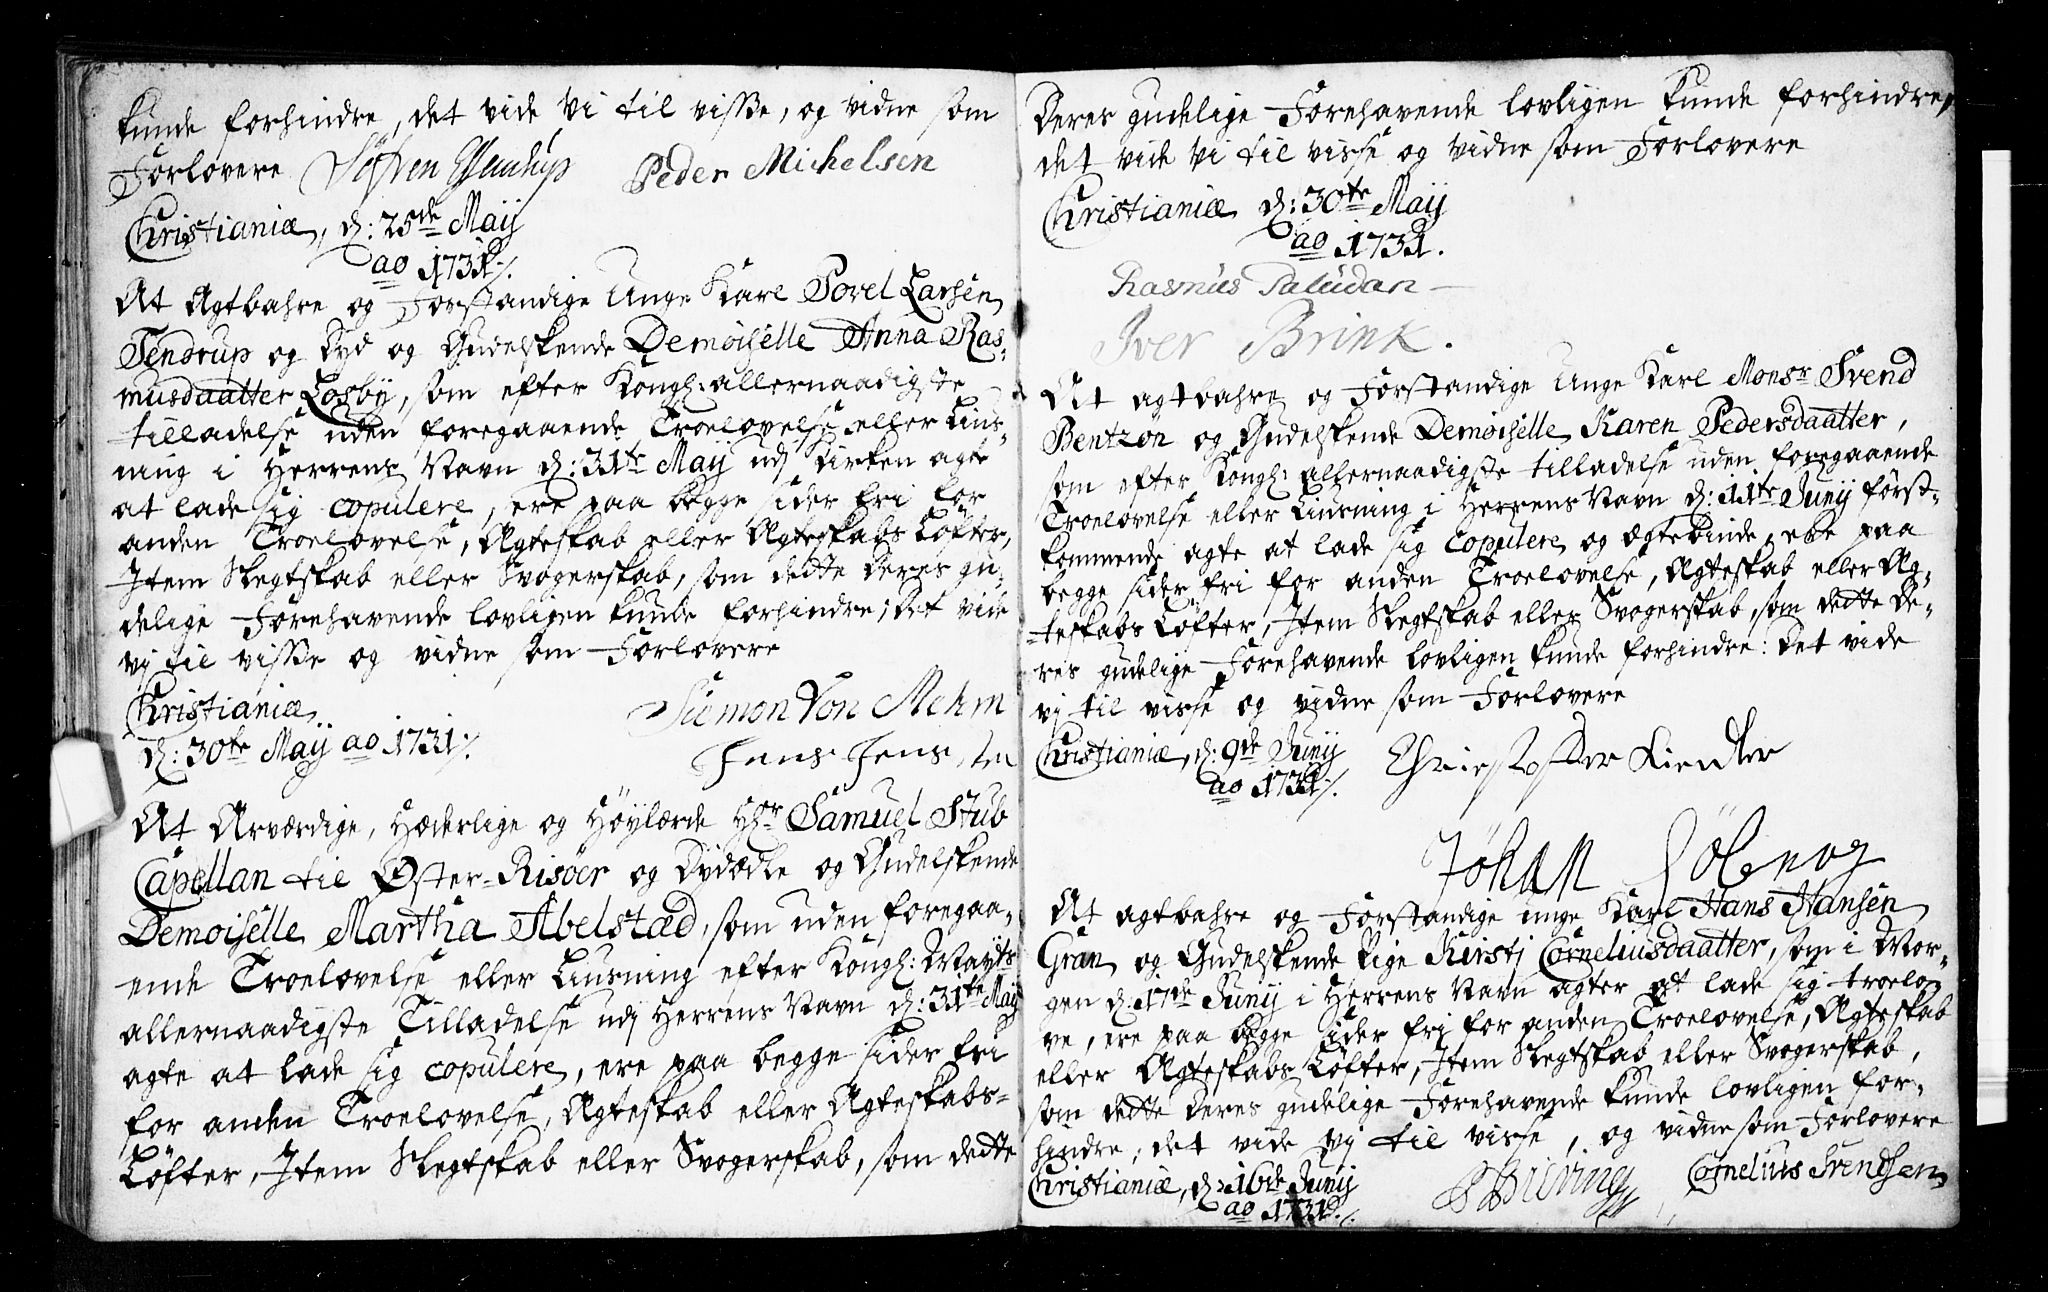 kunde forhindre, det vide vi til visse, og vidne som
Forlovere Søfren Peder Michelsen
Christianiæ, d: 25de Maij
ao 1731 ./.
At Agtbahre og Forstandige Unge Karl Povel Larsen
Tendrup og Dyd og Gudelskende Demoiselle Anna Ras-
musdaatter Losby, som efter Kongl: allernaadigste
tilladelse uden foregaaende Troelovelse eller Lius-
ning i Herrens Navn d: 31te Maij udj Kirken agte
at lade sig copulere, ere paa begge sider fri for
anden Troelovelse, Ægteskab eller Ægteskabs Løfter,
Item Slegtskab eller Svogerskab, som dette Deres gu-
delige Forehavende lovligen kunde forhindre; Det vide
vj til visse og vidne som Forlovere
Christianiæ Siemon Von Mehm
d: 30te Maij ao 1731 ./. Jens Jensen
At Ærværdige, Hæderlige og Høylærde Hr Samuel Stub
Capellan til Øster-Risøer og Dydædle og Gudelskende
Demoiselle Martha Abelstæd, som uden foregaa-
ende Troelovelse eller Liusning efter Kongl: Mayts
allernaadigste Tilladelse udj Herrens Navn d: 31te Maij
agte at lade sig copulere, ere paa begge sider fri
for anden Troelovelse, Ægteskab eller Ægteskabs-
Løfter, Item Slegtskab eller Svogerskab, som dette
Deres gudelige Forehavende lovligen kunde forhindre,
det vide vi til visse og vidne som Forlovere
Christianiæ d: 30te Maij
ao 1731.
Rasmus Paludan
Iver Brink.
At agtbahre og Forstandige Unge Karl Monsr Svend
Bentzon og Gudelskende Demoiselle Karen Pedersdaatter,
som efter Kongl: allernaadigste tilladelse uden foregaaende
Troelovelse eller Liusning i Herrens Navn d: 11te Junij først-
kommende agte at lade sig copulere og ægtebinde, ere paa
begge sider fri for anden Troelovelse, Ægteskab eller Æg-
teskabs Løfter, Item Slegtskab eller Svogerskab, som dette De-
res gudelige Forehavende lovligen kunde forhindre: Det vide
vj til visse og vidne som Forlovere
Christianiæ, d: 9de Junij
ao 1731 ./.
Johan
At agtbahre og Forstandige unge Karl Hans Hansen
Gran og Gudelskende Pige Kirstj Corneliusdaatter, som i Mor-
gen d: 17de Junij i Herrens Navn agter at lade sig troelo-
ve, ere paa begge sider fri for anden Troelovelse, Ægteskab
eller Ægteskabs Løfter, Item Slegtskab eller Svogerskab,
som dette Deres gudelige Forehavende kunde lovligen for-
hindre, det vide vj til visse, og vidne som Forlovere
Christianiæ, d: 16de Junij Cornelius Svendsen
ao 1731 ./.